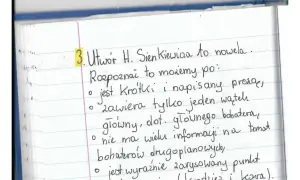 3. Utwór H. Sienkiewicza to nowela.
Rozpoznać to możemy po:
• jest krótki i napisany prozą,
• zawiera tylko jeden wątek
główny, dot. głównego bohatera,
• nie ma wielu informacji na temat
bohaterów drugoplanowych,
• jest wyraźnie zarysowany punkt